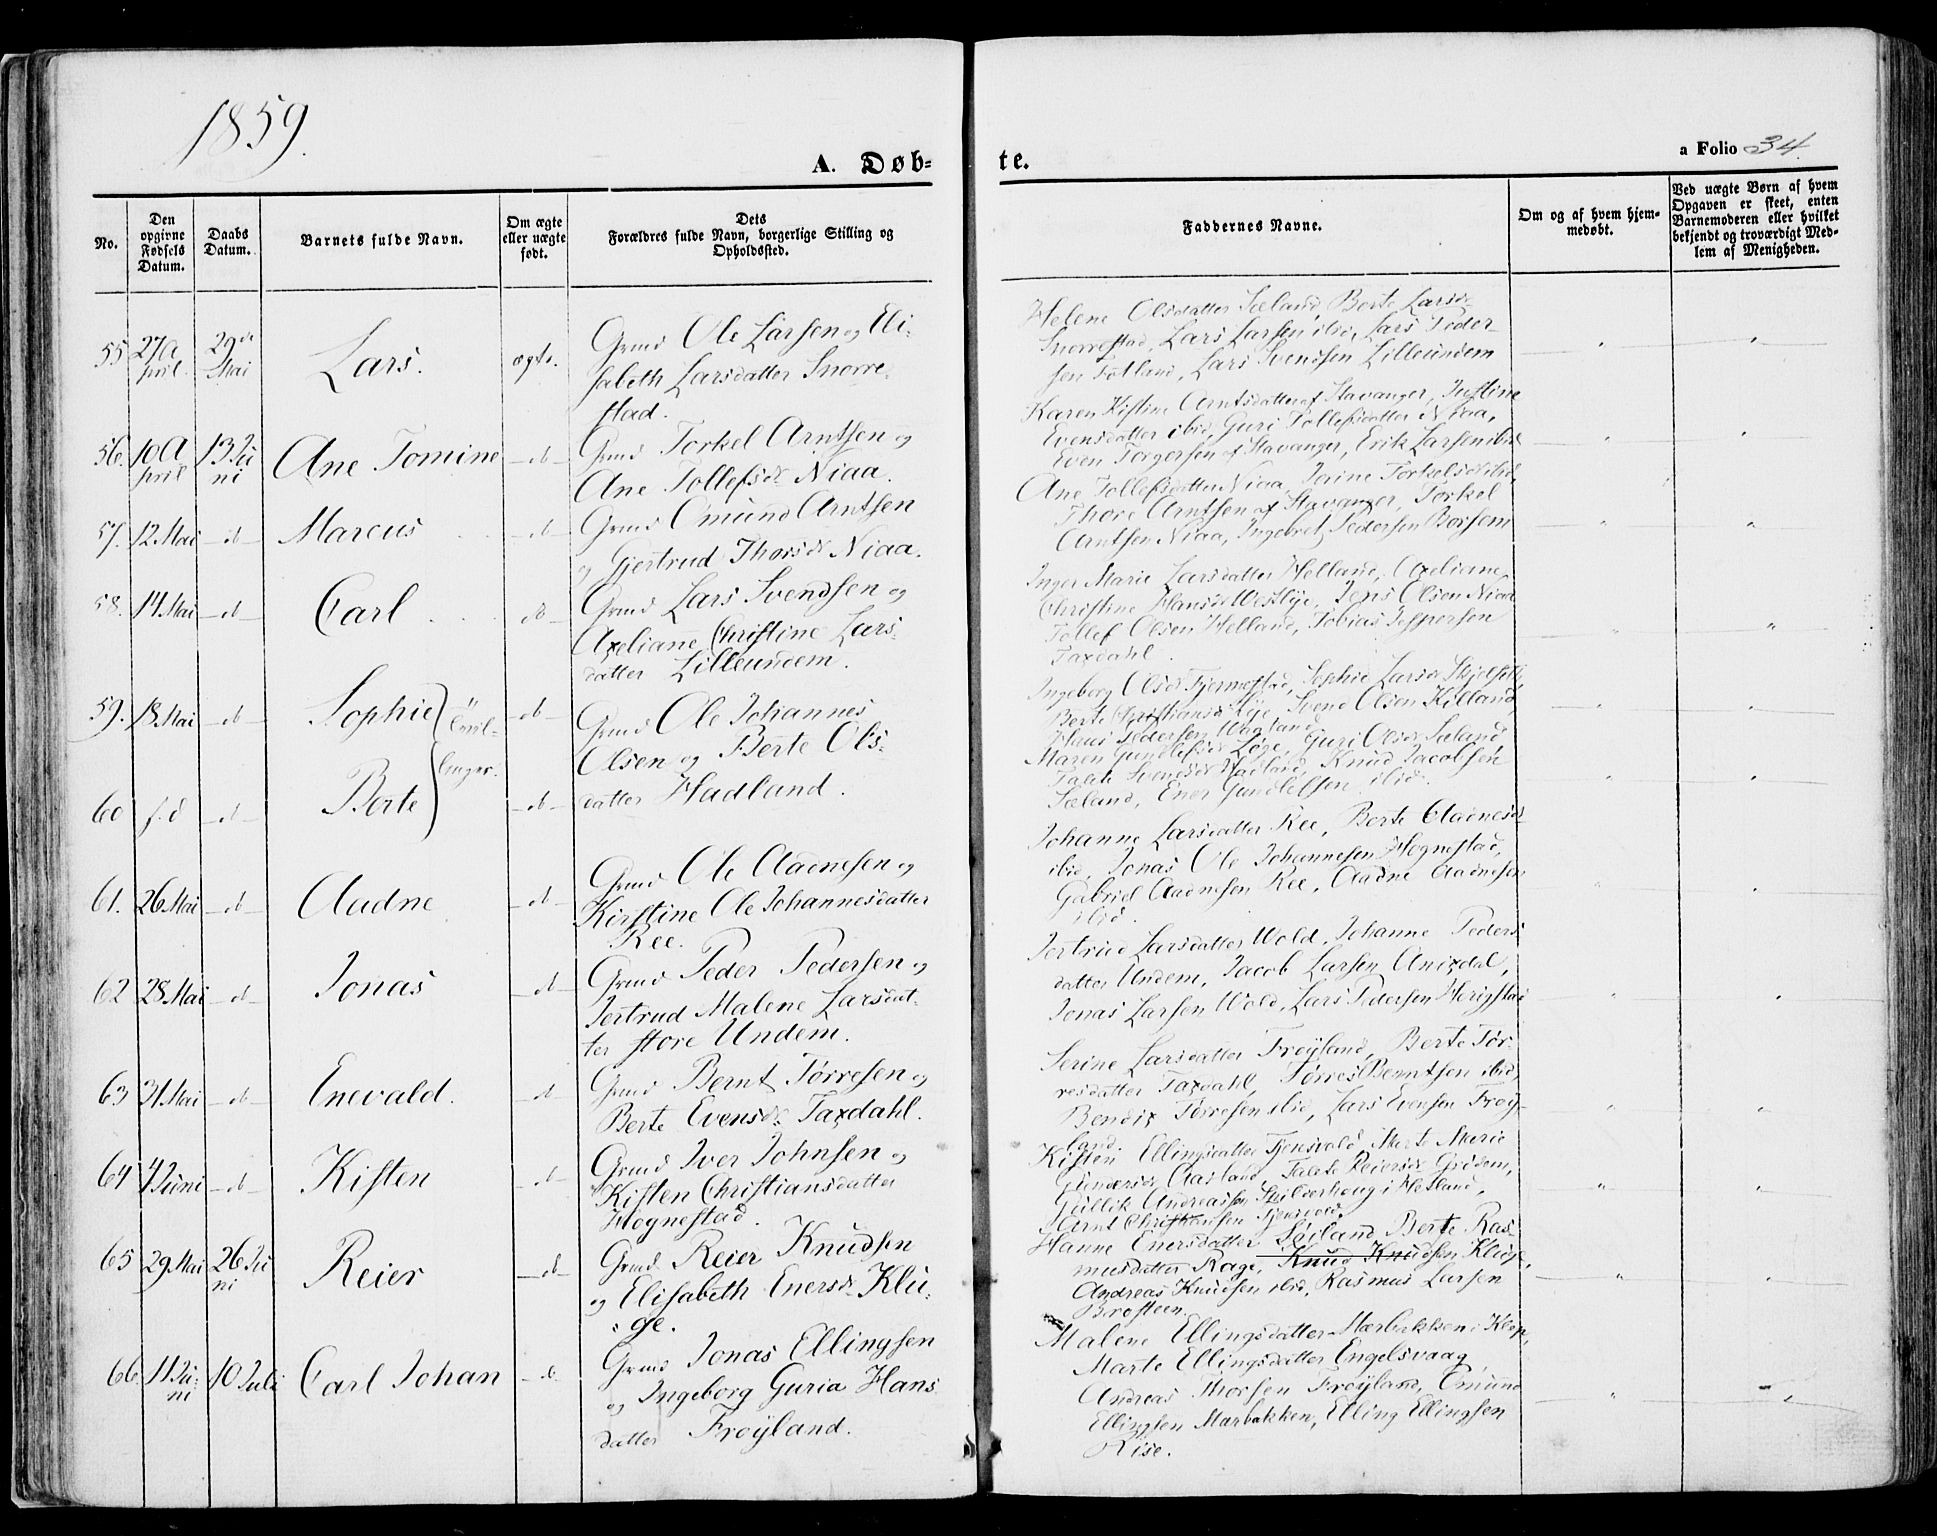 1859.
A. Døb-
te.
a Folio 34.
No.
Den opgivne Fødsels Datum.
Daabs Datum.
Barnets fulde Navn.
Om ægte eller uægte født.
Dets
Forældres fulde Navn, borgerlige Stilling og Opholdssted.
Faddernes Navne.
Om og af hvem hjemmedøbt.
Ved uægte Børn af hvem Opgaven er skeet, enten Barnemoderen eller hvilket bekjendt og troværdigt Medlem af Menigheden.
55 27 April 29de Mai Lars. ægte.
Grmd Ole Larsen og Eli-
sabeth Larsdatter Snorre-
stad.
Helene Olsdatter Sæland, Berte Larsd.
Snorrestad, Lars Larsen ibid, Lars Peder-
sen Fotland, Lars Svendsen Lilleundem
56. 10 April 13 Juni Ane Tomine do
Grmd Torkel Arntsen og
Ane Tollefsdr Niaa.
Karen Kistine Arntsdatter af Stavanger, Justine
Evensdatter ibid, Guri Tollefsdatter Niaa,
Even Torgersen af Stavanger, Erik Larsen ibid
57. 12 Mai do Marcus do
Grmd Omund Arntsen
og Gjertrud Thorsdr Niaa.
Ane Tollefsdatter Niaa, Serine Torkelsdr ibid,
Thore Arntsen af Stavanger, Torkel
Arntsen Niaa, Ingebret Pedersen Borsem
58. 14 Mai do Carl do
Grmd Lars Svendsen og
Axeliane Christine Lars-
datter Lilleundem.
Inger Marie Larsdatter Helland, Axeliane
Christine Hansdr Westlye, Jens Olsen Niaa
Tollef Olsen Helland, Tobias Jespersen
Taxdahl.
59. 18 Mai do Sophie do
60 s.d do Berte do
Tvil-
linger.
Grmd Ole Johannes
Olsen og Berte Ols-
datter Hadland.
Ingeborg Olsdr Fjermestad, Sophie Larsdr
Berte Christiansdr Lye, Svend Olsen Killand,
Hans Pedersen Wagland
Maren Gundlefsdr Løge, Guri Olsdr Sæland
Svendsdr Hadland, Knud Jacobsen
Sæland, Ener Gundlefsen ibid.
61. 26 Mai do Aadne do
Grmd Ole Aadnesen og
Kirstine Ole Johannesdatter
Kee.
Johanne Larsdatter Kee, Berte Aadnesdr
ibid, Jonas Ole Johannesen Hognestad,
Gabriel Aadnesen Kee, Aadne Aadnesen
ibid.
62 28 Mai do Jonas do
Grmd Peder Pedersen og
Jertrud Malene Larsdat-
ter store Undem.
Jertrud Larsdatter Wold, Johanne Peders
datter Undem, Jacob Larsen Anixdal,
Jonas Larsen Wold, Lars Pedersen Herigstad
63 31 Mai do Enevald. do
Grmd Bernt Tørresen og
Berte Evensdr Taxdahl.
Serine Larsdatter Frøyland, Berte Tør-
resdatter Taxdahl, Tørres Berntsen ibid,
Bendix Tørresen ibid, Lars Evensen Frøy-
land.
64 4 Juni do Kisten do
Grmd Iver Johnsen og
Kisten Christiansdatter
Hognestad.
Kisten Ellingsdatter Tjensvold, Marte Marie
Gundersdr Aasland, Reiersdr Grødem,
Gullik Andreassen i Hetland,
Arnt Christiansen Tjensvold.
65 29 Mai 26 Juni Reier do
Grmd Reier Knudsen
og Elisabeth Enersdr Klu-
ge.
Hanne Enersdatter Søiland, Berte Ras-
musdatter Rage, Knud Knudsen Klep,
Andreas Knudsen ibid, Rasmus Larsen
Brøsteen.
66. 11 Juni 10 Juli Carl Johan do
Grmd Jonas Ellingsen
og Ingeborg Guria Hans
datter Frøyland.
Malene Ellingsdatter Mærbakken i Klep,
Marte Ellingsdatter Engelsvaag
Andreas Thorsen Frøyland, Omund
Ellingsen Mærbakken, Elling Ellingsen
Rise.